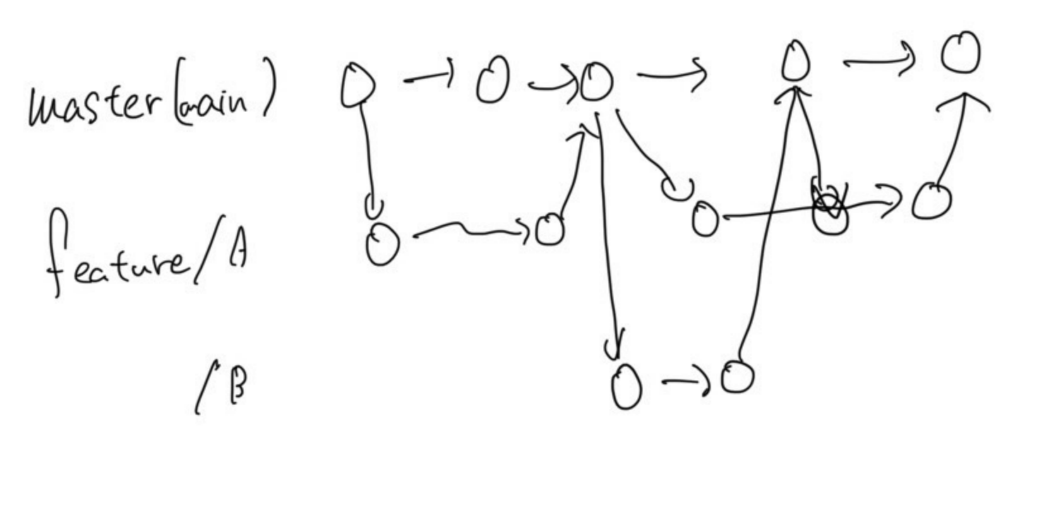 master(main)
feature/A
/B